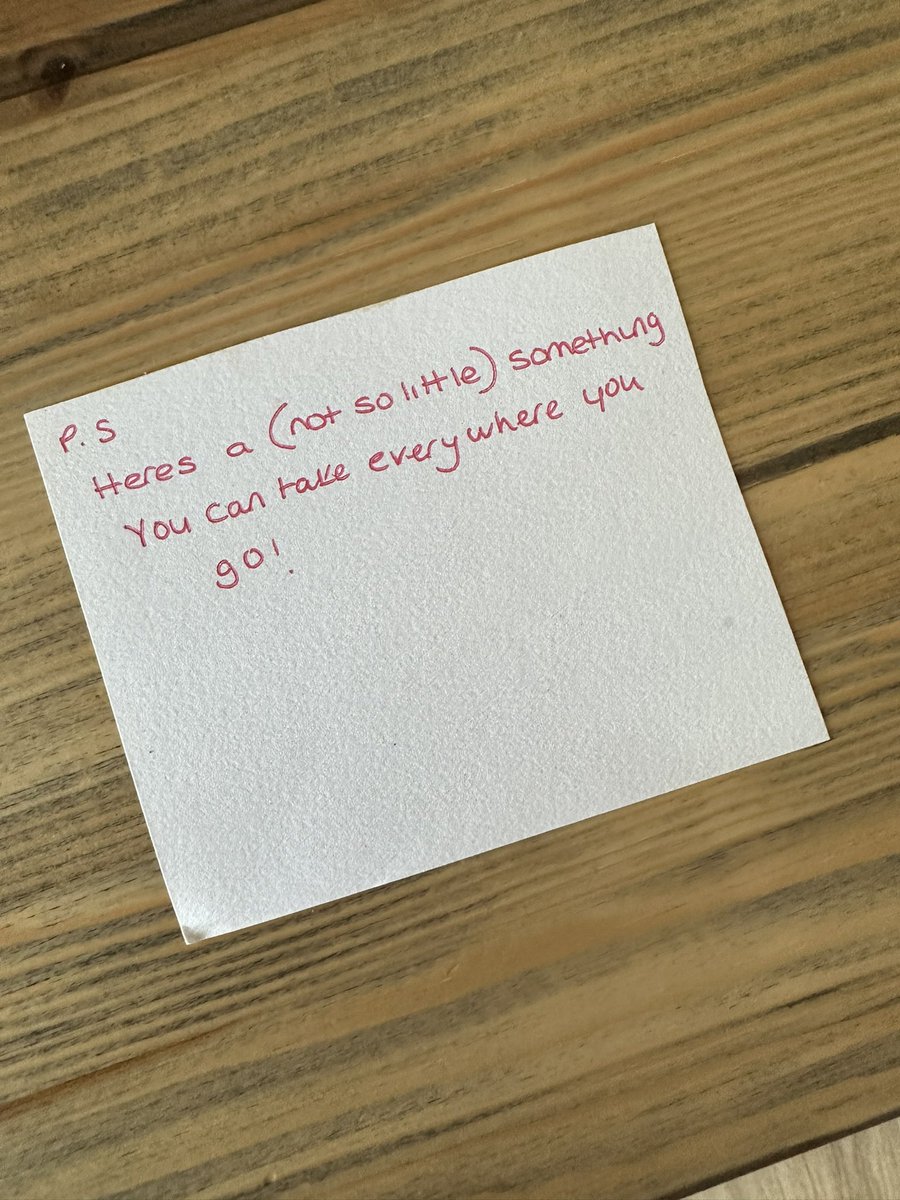 P.S
Heres a (not so little) something
You can take everywhere you
go!